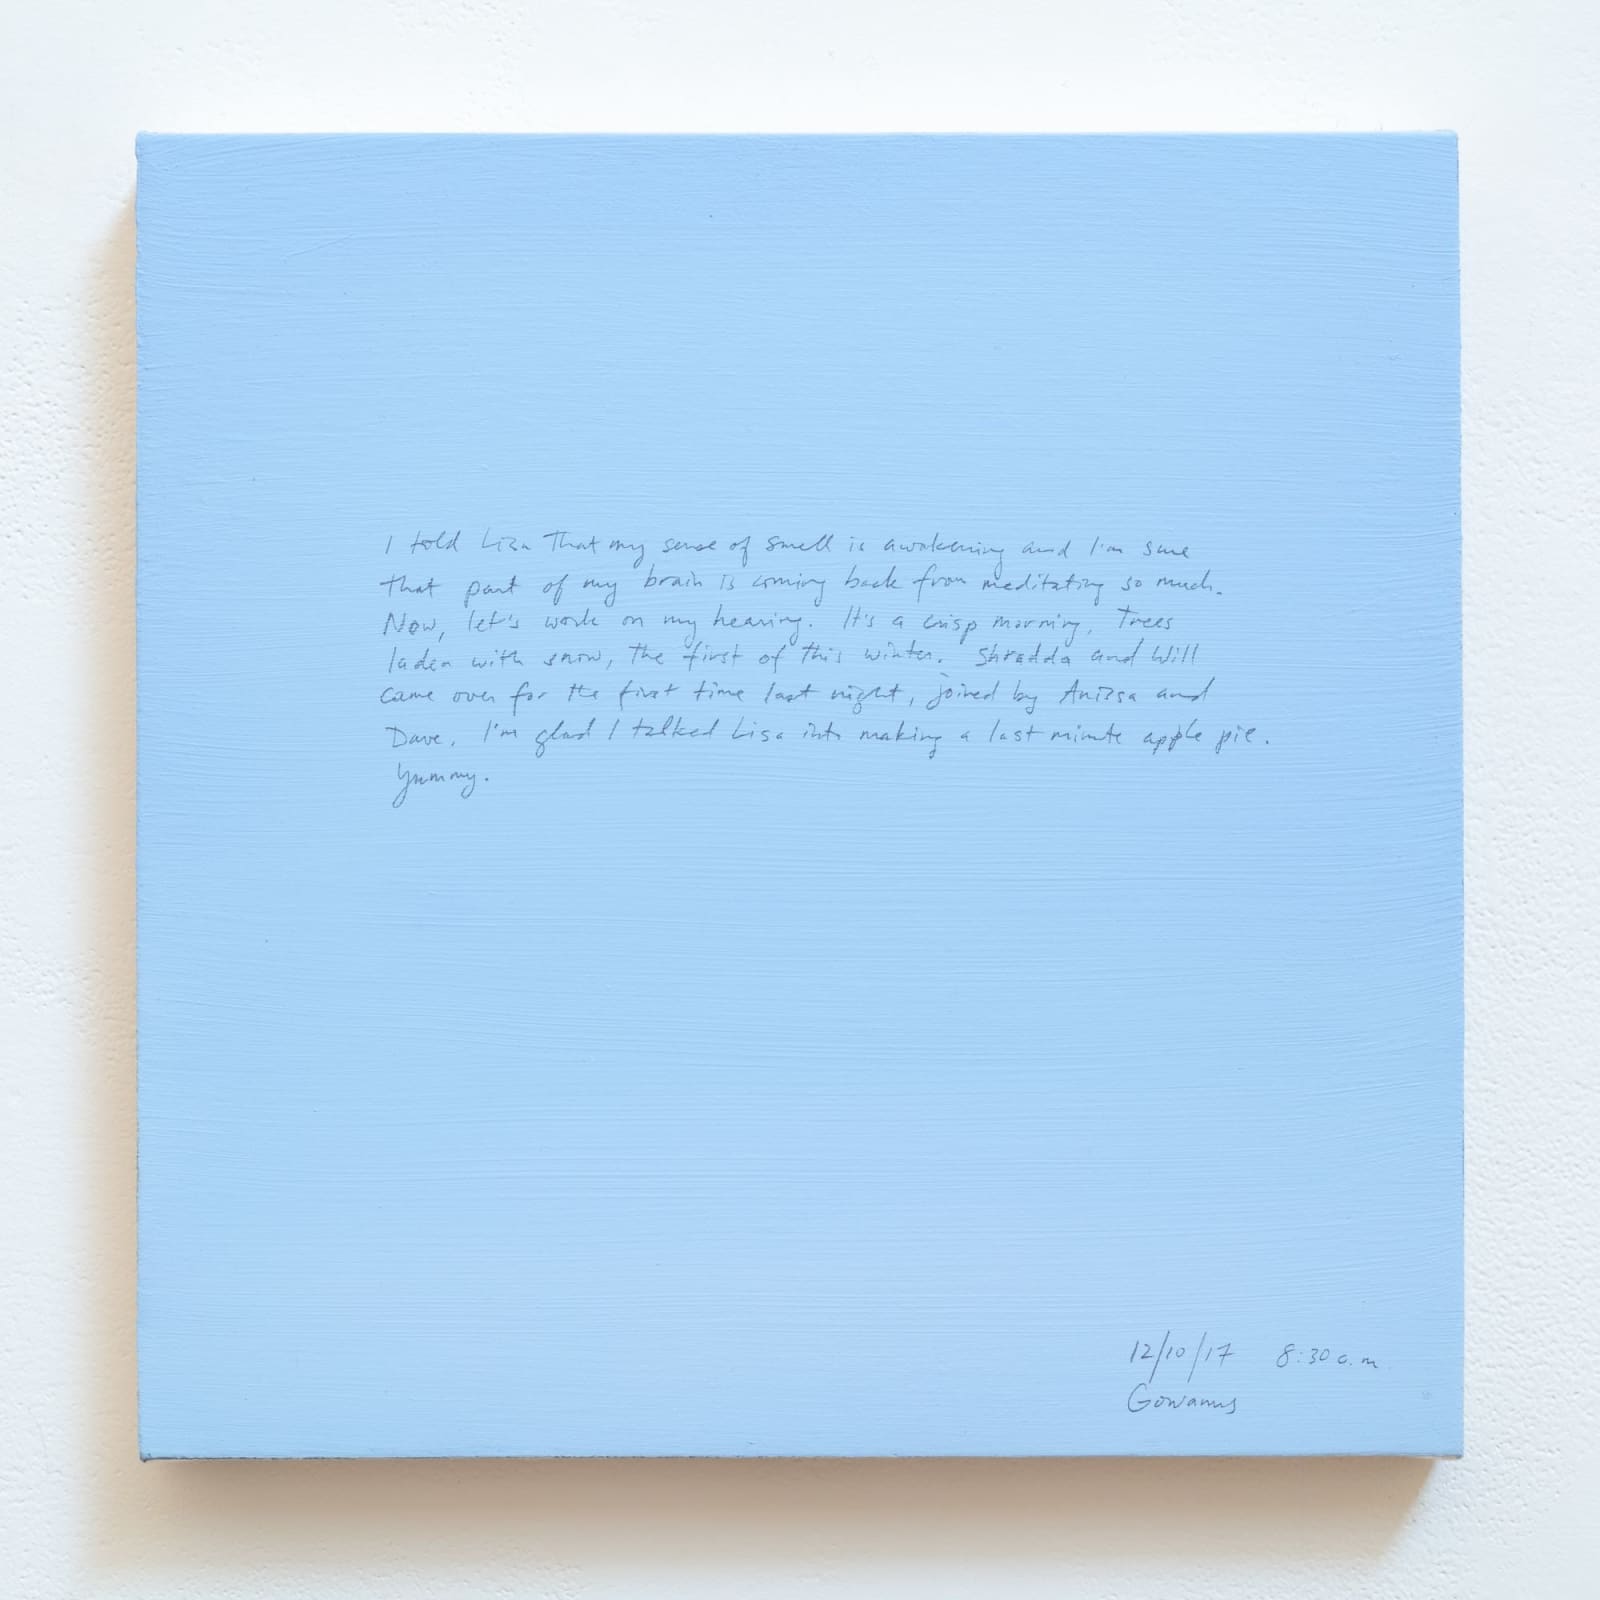 I told Lisa that my sense of smell is awakening and I'm sure
that part of my brain is coming back from meditating so much.
Now, let's work on my hearing. It's a crisp morning, Trees
laden with snow, the first of this winter. Shradda and Will
came over for the first time last night, joined by Anissa and
Dave. I'm glad I talked Lisa into making a last minute apple pie.
Yummy.
12/10/17 8:30 a.m.
Gowanus